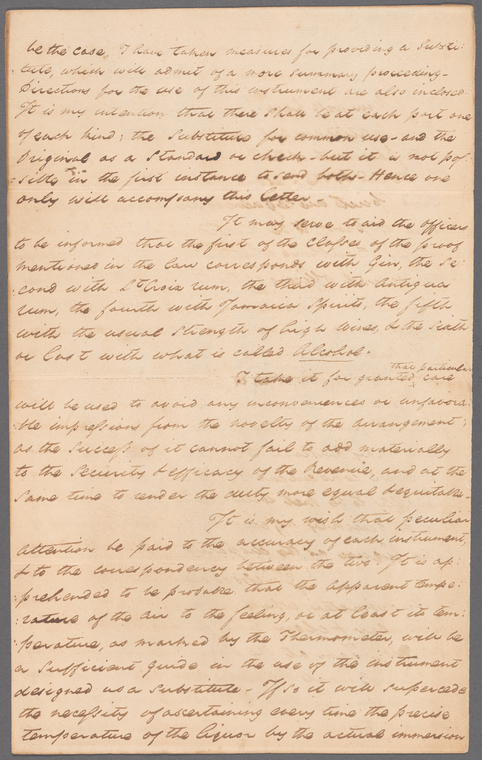 be the case, I have taken measures for providing a Substi:
:tute, which will admit of a more summary proceeding-
Directions for the use of this instrument are also inclosed
It is my intention that there Shall be at each port one
of each kind; the Substitute for common use - and the
Original as a Standard or check - but it is not pos:
:sible in the first instance to send both - Hence one
only will accompany this letter
It may serve to aid the officers
to be informed that the first of the Classes of the proof
mentioned in the law corresponds with Gin, the Se:
:cond with St Croix rum, the third with Antigua
rum, the fourth with Jamaica Spirits, the fifth
with the usual strength of high wines, & the Sixth
or last with what is called Alcohol.
that particular
I take it for granted, care
will be used to avoid any inconveniences or unfavora:
:ble impressions from the novelty of the arrangement;
as the Success of it cannot fail to add materially
to the Security & efficacy of the Revenue, and at the
Same time to render the duty more equal & equitable-
It is my wish that peculiar
Attention be paid to the accuracy of each instrument,
& to the correspondency between the two. It is ap:
:prehended to be probable, that the apparent tempe:
:rature of the air to the feeling, or at least its tem:
:perature, as marked by the Thermometer, will be
a Sufficient guide in the use of the instrument
designed as a Substitute - If So it will supercede
the necessity of ascertaining every time the precise
temperature of the liquor by the actual immersion